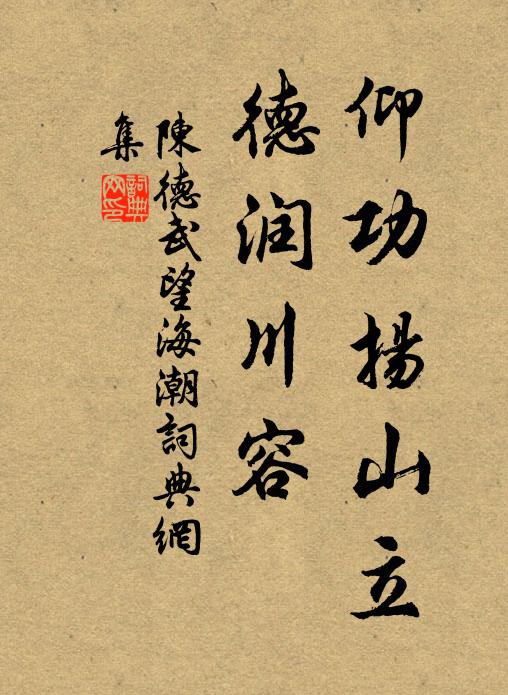 仰功揚山立
德润川容
陳德武望海潮詞典網
集
詞典
网印